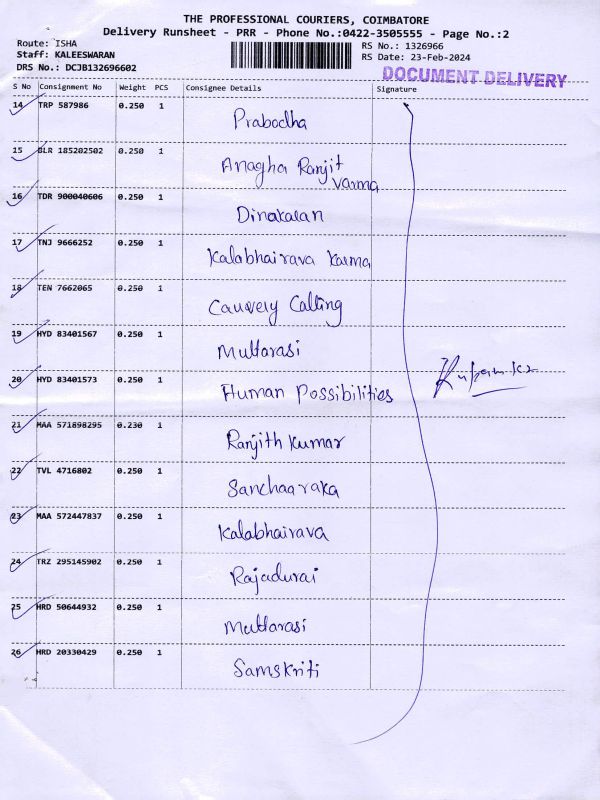 THE PROFESSIONAL COURIERS, COIMBATORE
Delivery Runsheet - PRR - Phone No.:0422-3505555 - Page No.:2
Route: ISHA
Staff: KALEESWARAN
DRS No.: DCJB132696602
RS No.: 1326966
RS Date: 23-Feb-2024
DOCUMENT DELIVERY
S No Consignment No Weight PCS Consignee Details Signature
14 TRP 587986 0.250 1 Prabodha
15 BLR 185202502 0.250 1 Anagha Ranjit
Varma
16 TDR 900040606 0.250 1 Dinakaran
17 TNJ 9666252 0.250 1 Kalabhairava Karma
18 TEN 7662065 0.250 1 Cauvery Calling
19 HYD 83401567 0.250 1 Muttarasi
20 HYD 83401573 0.250 1 Human Possibilities
21 MAA 571898295 0.230 1 Ranjith Kumar
22 TVL 4716802 0.250 1 Sanchaaraka
23 MAA 572447837 0.250 1 Kalabhairava
24 TRZ 295145902 0.250 1 Rajadurai
25 HRD 50644932 0.250 1 Muttarasi
26 HRD 20330429 0.250 1 Samskriti